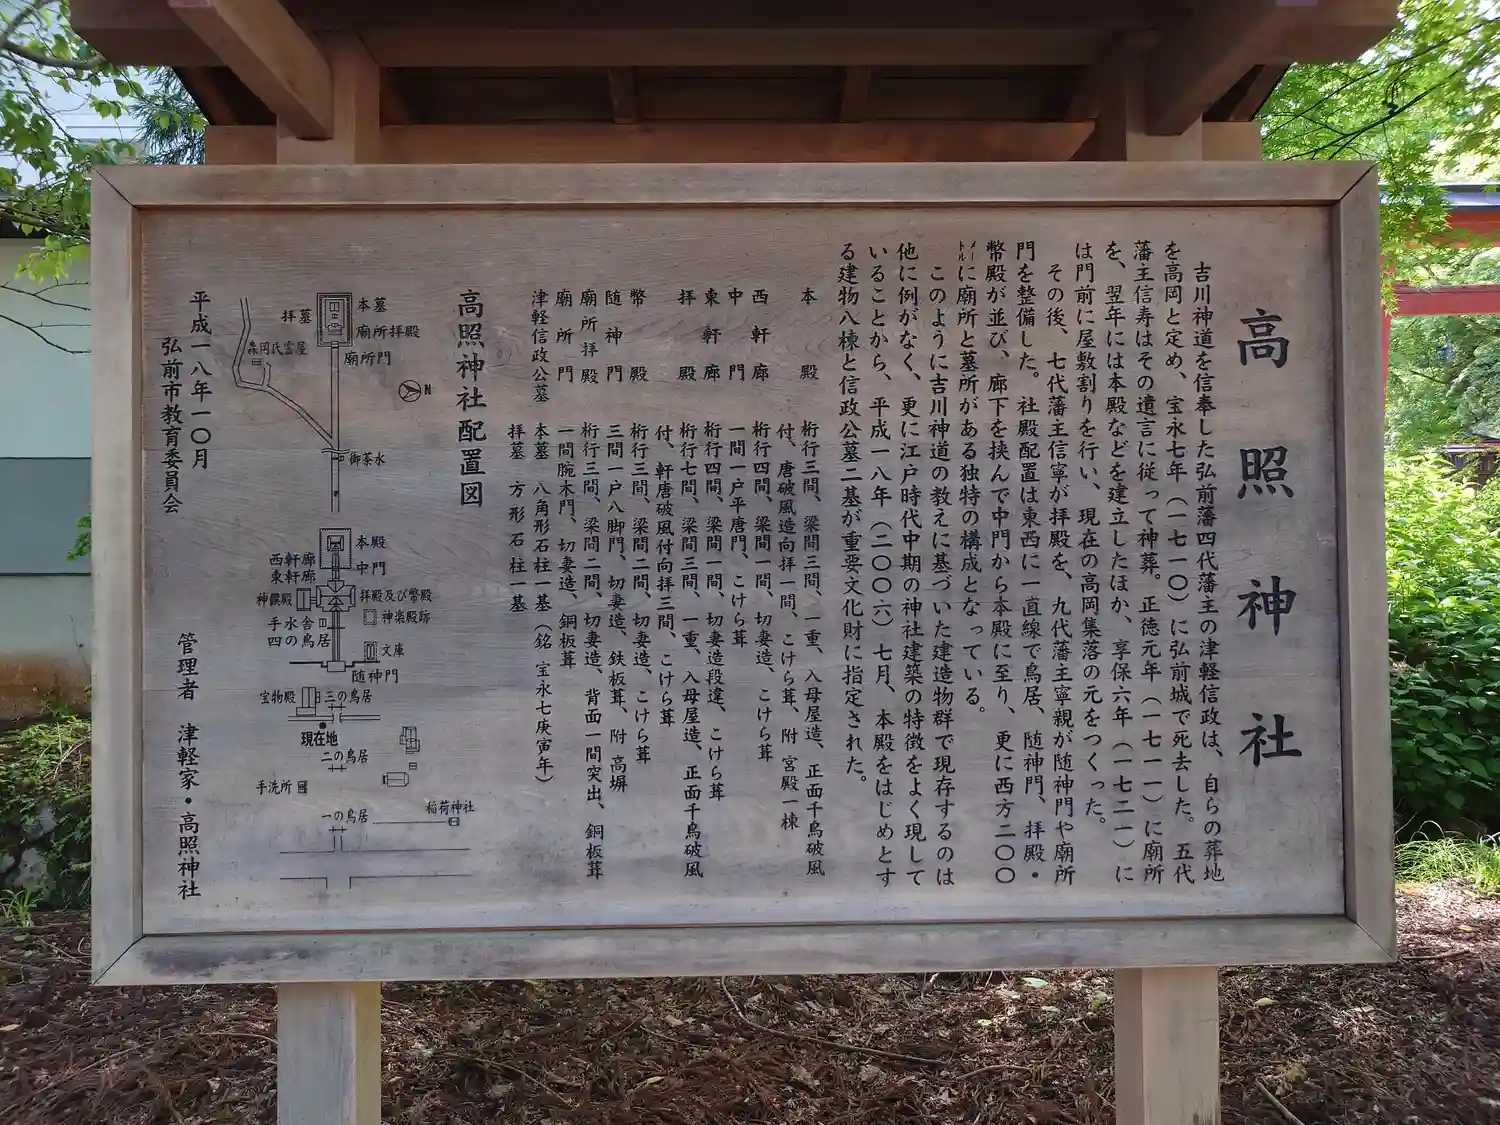 高照神社
吉川神道を信奉した弘前藩四代藩主の津軽信政は、自らの葬地
を高岡と定め、宝永七年(一七一〇)に弘前城で死去した。五代
藩主信寿はその遺言に従って神葬。正徳元年(一七一一)に廟所
を、翌年には本殿などを建立したほか、享保六年(一七二一)に
は門前に屋敷割りを行い、現在の高岡集落の元をつくった。
その後、七代藩主信寧が拝殿を、九代藩主寧親が随神門や廟所
門を整備した。社殿配置は東西に一直線で鳥居、随神門、拝殿・
幣殿が並び、廊下を挟んで中門から本殿に至り、更に西方二〇〇
メートルに廟所と墓所がある独特の構成となっている。
このように吉川神道の教えに基づいた建造物群で現存するのは
他に例がなく、更に江戸時代中期の神社建築の特徴をよく現して
いることから、平成一八年(二〇〇六)七月、本殿をはじめとす
る建物八棟と信政公墓二基が重要文化財に指定された。
本殿 桁行三間、梁間三間、一重、入母屋造、正面千鳥破風
付、唐破風造向拝一間、こけら葺、附 宮殿一棟
西軒廊 桁行四間、梁間一間、切妻造、こけら葺
中門 一間一戸平唐門、こけら葺
東軒廊 桁行四間、梁間一間、切妻造段違、こけら葺
拝殿 桁行七間、梁間三間、一重、入母屋造、正面千鳥破風
付、軒唐破風付向拝三間、こけら葺
幣殿 桁行三間、梁間二間、切妻造、こけら葺
随神門 三間一戸八脚門、切妻造、鉄板葺、附 高塀
廟所拝殿 桁行三間、梁間二間、切妻造、背面一間突出、銅板葺
廟所門 一間腕木門、切妻造、銅板葺
津軽信政公墓 本墓 八角形石柱一基(銘 宝永七庚寅年)
拝墓 方形石柱一基
高照神社配置図
本墓
拝墓
廟所拝殿
廟所門
森岡氏霊屋
N
御茶水
本殿
西軒廊
中門
東軒廊
神饌殿
拝殿及び幣殿
手水舎
神楽殿跡
四の鳥居
文庫
随神門
宝物殿
三の鳥居
現在地
二の鳥居
手洗所
稲荷神社
一の鳥居
平成一八年一〇月
弘前市教育委員会
管理者 津軽家・高照神社